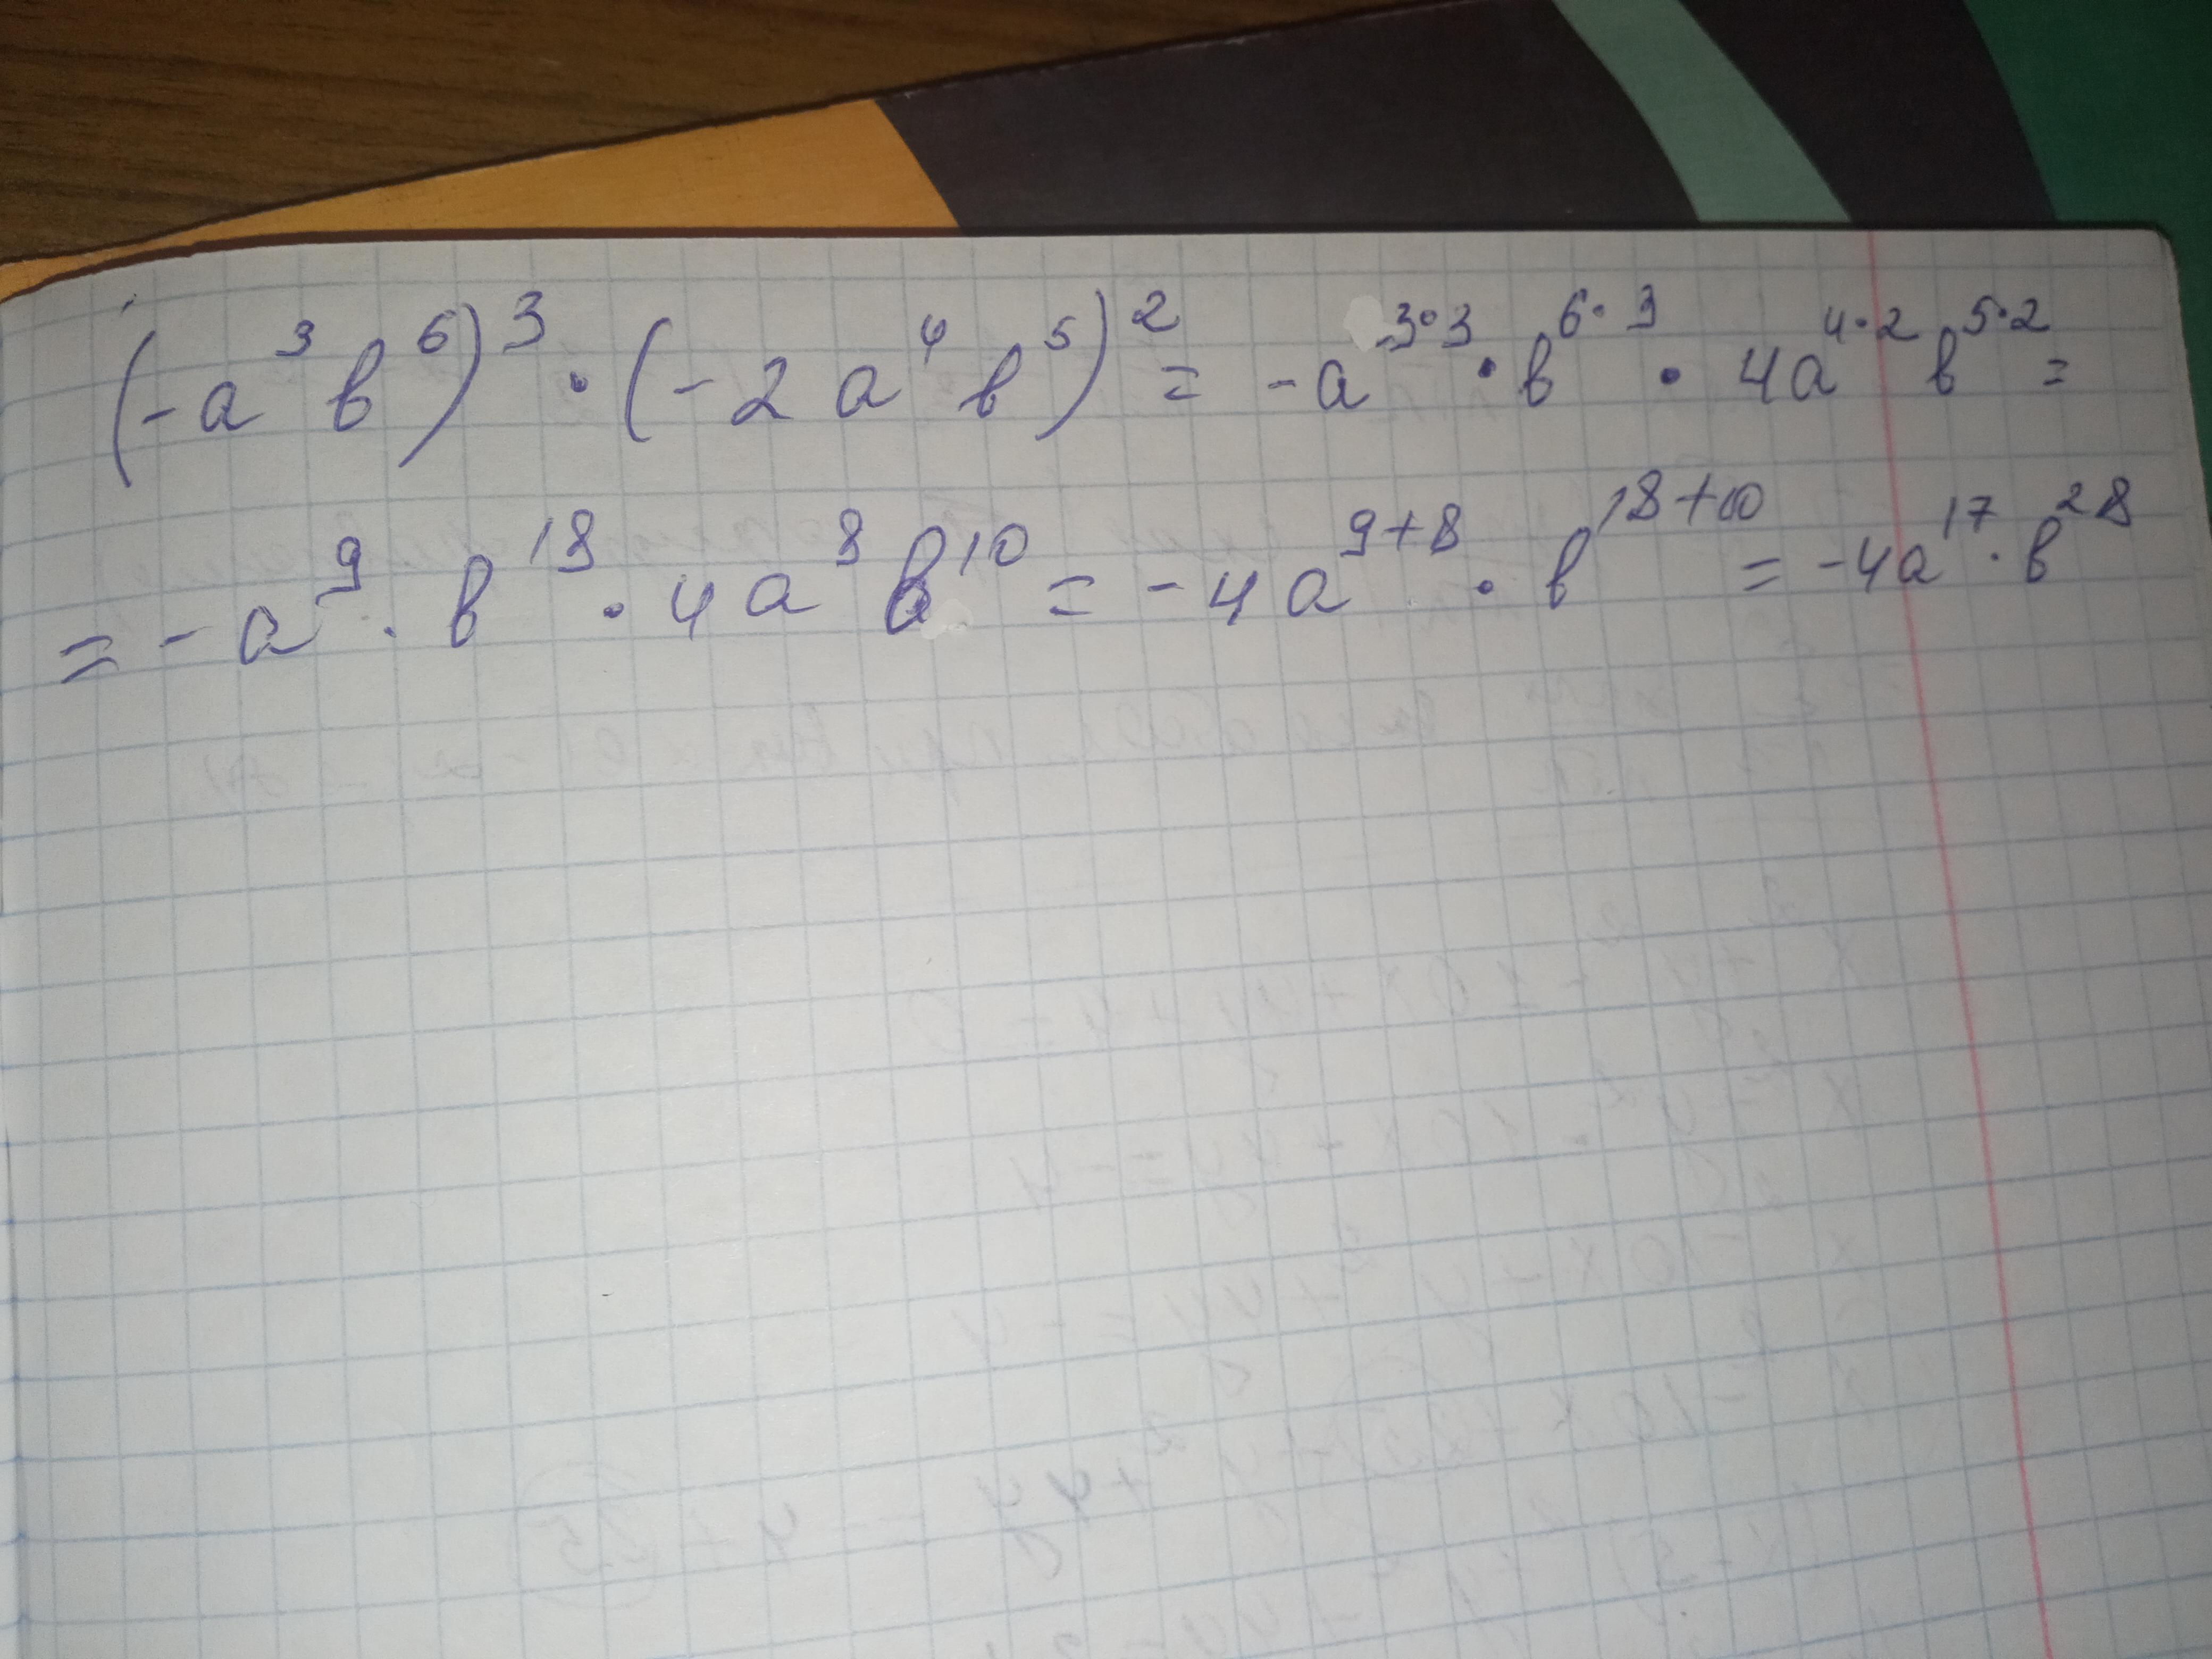 (-a³b⁶)³ · (-2a⁴b⁵)² = -a³·³ · b⁶·³ · 4a⁴·²b⁵·² =
= -a⁹ · b¹⁸ · 4a⁸b¹⁰ = -4a⁹⁺⁸ · b¹⁸⁺¹⁰ = -4a¹⁷ · b²⁸